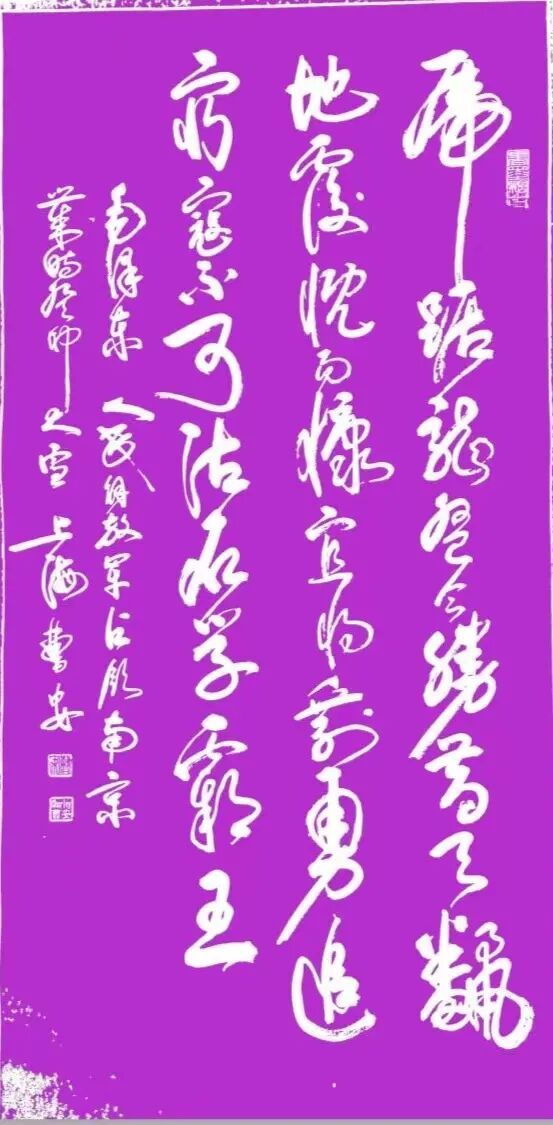 虎踞龍盤今勝昔天翻
地覆慨而慷宜將剩勇追
窮寇不可沽名學霸王
毛澤東 人民解放軍占領南京
時癸卯大雪 上海 曹安